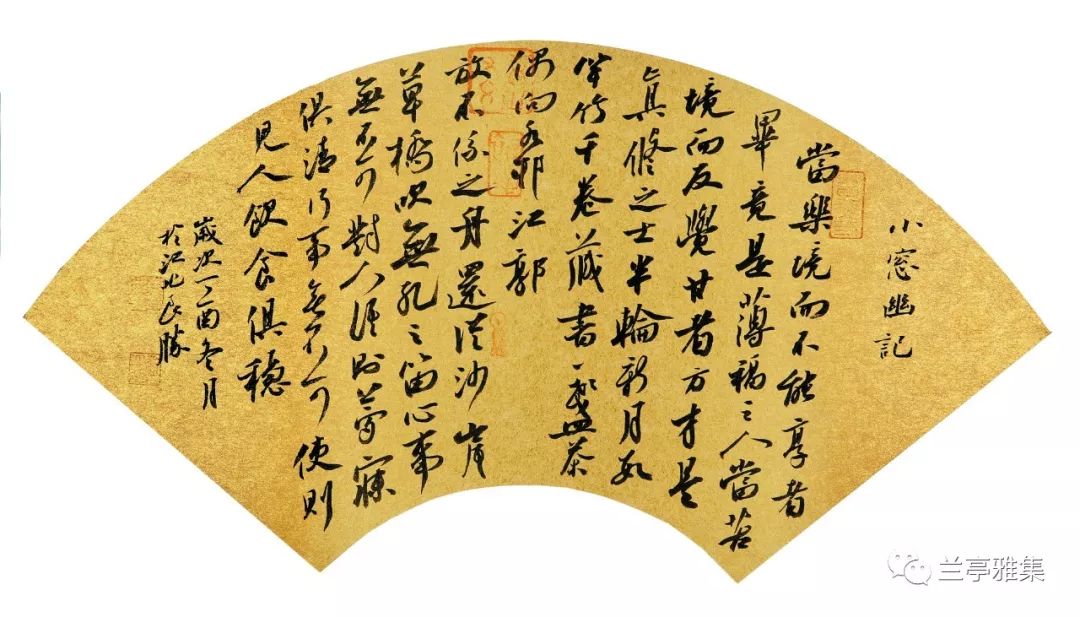 小窓幽記
當樂境而不能享者
畢竟是薄福之人當苦
境而反覺甘者方才是
真修之士半輪新月數
竿竹千卷藏書一盞茶
偶向水邨江郭
放不係之舟還從沙岸
草橋吹無孔之笛心事
無不可對人語則夢寐
俱清行事無不可使則
見人飲食俱穩
歲次丁酉冬月
於江北勝
兰亭雅集